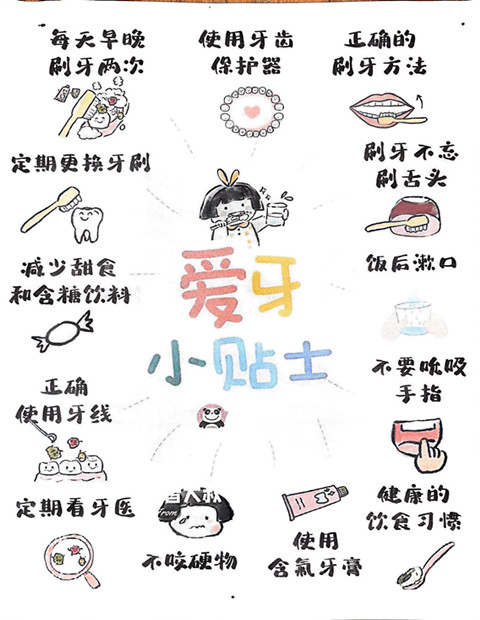 每天早晚
刷牙两次
使用牙齿
保护器
正确的
刷牙方法
定期更换牙刷
刷牙不忘
刷舌头
减少甜食
和含糖饮料
爱牙
小贴士
饭后漱口
正确
使用牙线
不要吮吸
手指
定期看牙医
不咬硬物
使用
含氟牙膏
健康的
饮食习惯